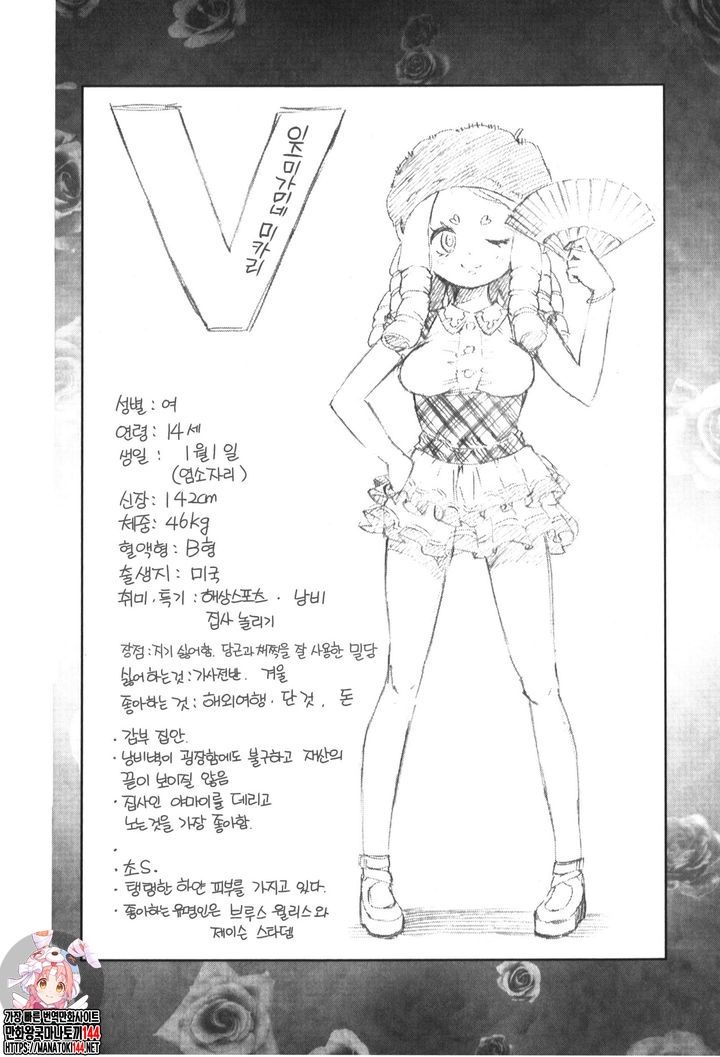 V
잇즈미가미네 미카리
성별: 여
연령: 14세
생일: 1월1일
(염소자리)
신장: 142cm
체중: 46kg
혈액형: B형
출생지: 미국
취미.특기: 해상스포츠. 낭비
집사 놀리기
장점: 지기 싫어함. 당근과 채찍을 잘 사용한 밀당
싫어하는것: 가사전반. 겨울
좋아하는 것: 해외여행. 단것. 돈
· 갑부 집안.
· 낭비벽이 굉장함에도 불구하고 재산의
끝이 보이질 않음
· 집사인 야마이를 데리고
노는것을 가장 좋아함.
·
· 초S.
· 탱탱한 하얀 피부를 가지고 있다.
· 좋아하는 유명인은 브루스 윌리스와
제이슨 스타뎀
가장 빠른 번역만화사이트
만화왕국마나토끼144
HTTPS://MANATOKI144.NET